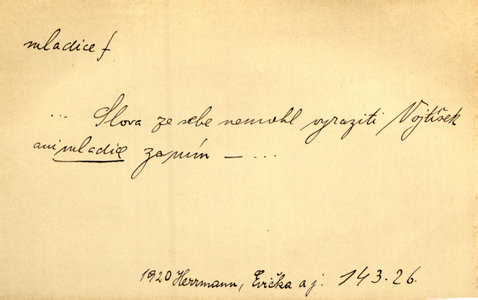 mladice f
... Slova ze sebe nemohl vyraziti Vojtíšek
ani mladice zaním — ...
1920 Herrmann, Evička aj. 143.26.